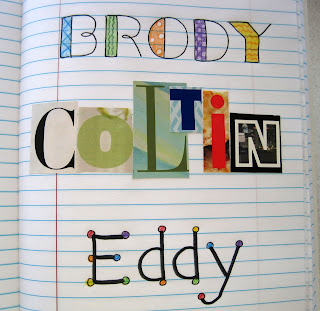 BRODY
COLTiN
Eddy